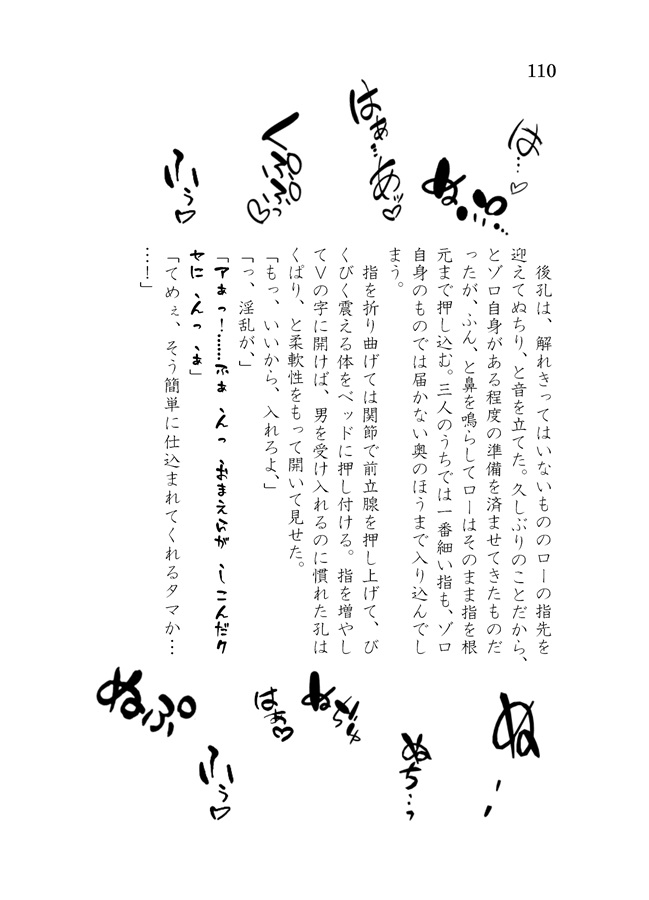 110
は…♡
ねぷぷ…
はぁ…あッ♡
くぷぷぷっ♡
ふぅ♡
後孔は、解れきってはいないもののローの指先を
迎えてぬちり、と音を立てた。久しぶりのことだから、
とゾロ自身がある程度の準備を済ませてきたものだ
ったが、ふん、と鼻を鳴らしてローはそのまま指を根
元まで押し込む。三人のうちでは一番細い指も、ゾロ
自身のものでは届かない奥のほうまで入り込んでし
まう。
指を折り曲げては関節で前立腺を押し上げて、び
くびく震える体をベッドに押し付ける。指を増やし
てVの字に開けば、男を受け入れるのに慣れた孔は
くぱり、と柔軟性をもって開いて見せた。
「もっ、いいから、入れろよ、」
「っ、淫乱が、」
「アぁっ！……ふぁ んっ おまえらが しこんだク
セに んっ あ」
「てめぇ、そう簡単に仕込まれてくれるタマか…
…！」
ぬ
ぬち…っ
はぁ♡
ふぅ♡
ぬぷぷ